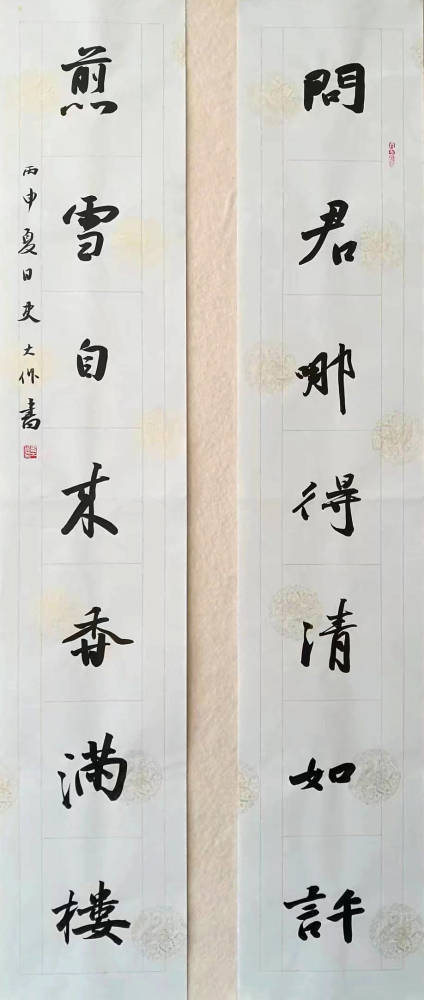 問君哪得清如許
煎雪自来香滿樓
丙申夏日史大作書